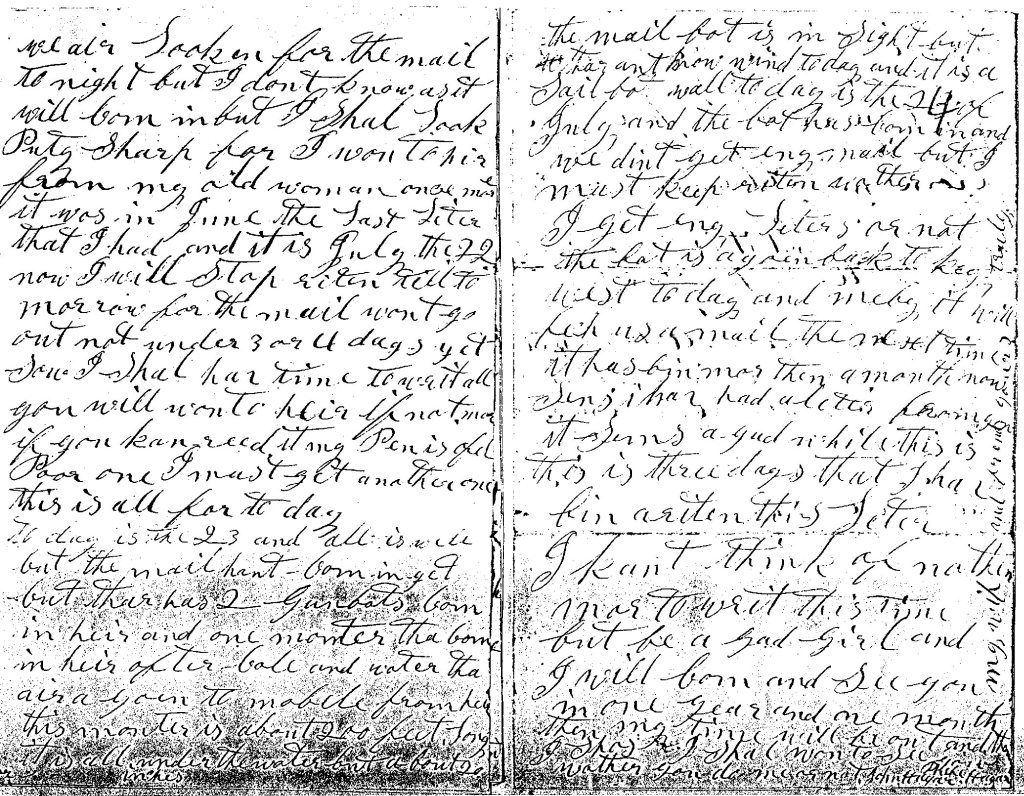 we air Looken for the mail
to night but I dont know as it
will bom in but I Shal Look
Puty Sharp for I wont to hir
from my old woman once mor
it was in June the Last Leter
that I had and it is July the 22
now I will Stop riten till to
morrow for the mail wont go
out not under 3 or 4 days yet
Sow I Shal har time to writ all
you will wont to heir if not mor
if you kan reed it my Pen is
Poor one I must get another one
this is all for to day
To day is the 23 and all is well
but the mail hant bom in yet
but thar has 2 Gunbots bom
in heir and one monter tha bom
in heir ofter bole and water tha
air a goen to mobele from heir
this monter is about 200 feet Long
it is all under the water but about 20
inches
the mail bot is in Sight but
thar ant now wind to day and it is a
Sail bo wall to day is the 24 of
July and the bot has bom in and
we dint get eny mail but I
must keep riten wether
I get eny Leters or not
the bot is a goin back to key
west to day and meby it will
feh us a mail the next time
it has bin mor then a month now
Sens i har had a leter from you
it Sems a gud while this is
this is three days that I har
bin a riten this Leter
I kant think of nothen
mor to writ this time
but be a gad girl and
I will bom and See you
in one year and one month
then my time will be out and
I Shal wont to
wether you do me or not
my wife